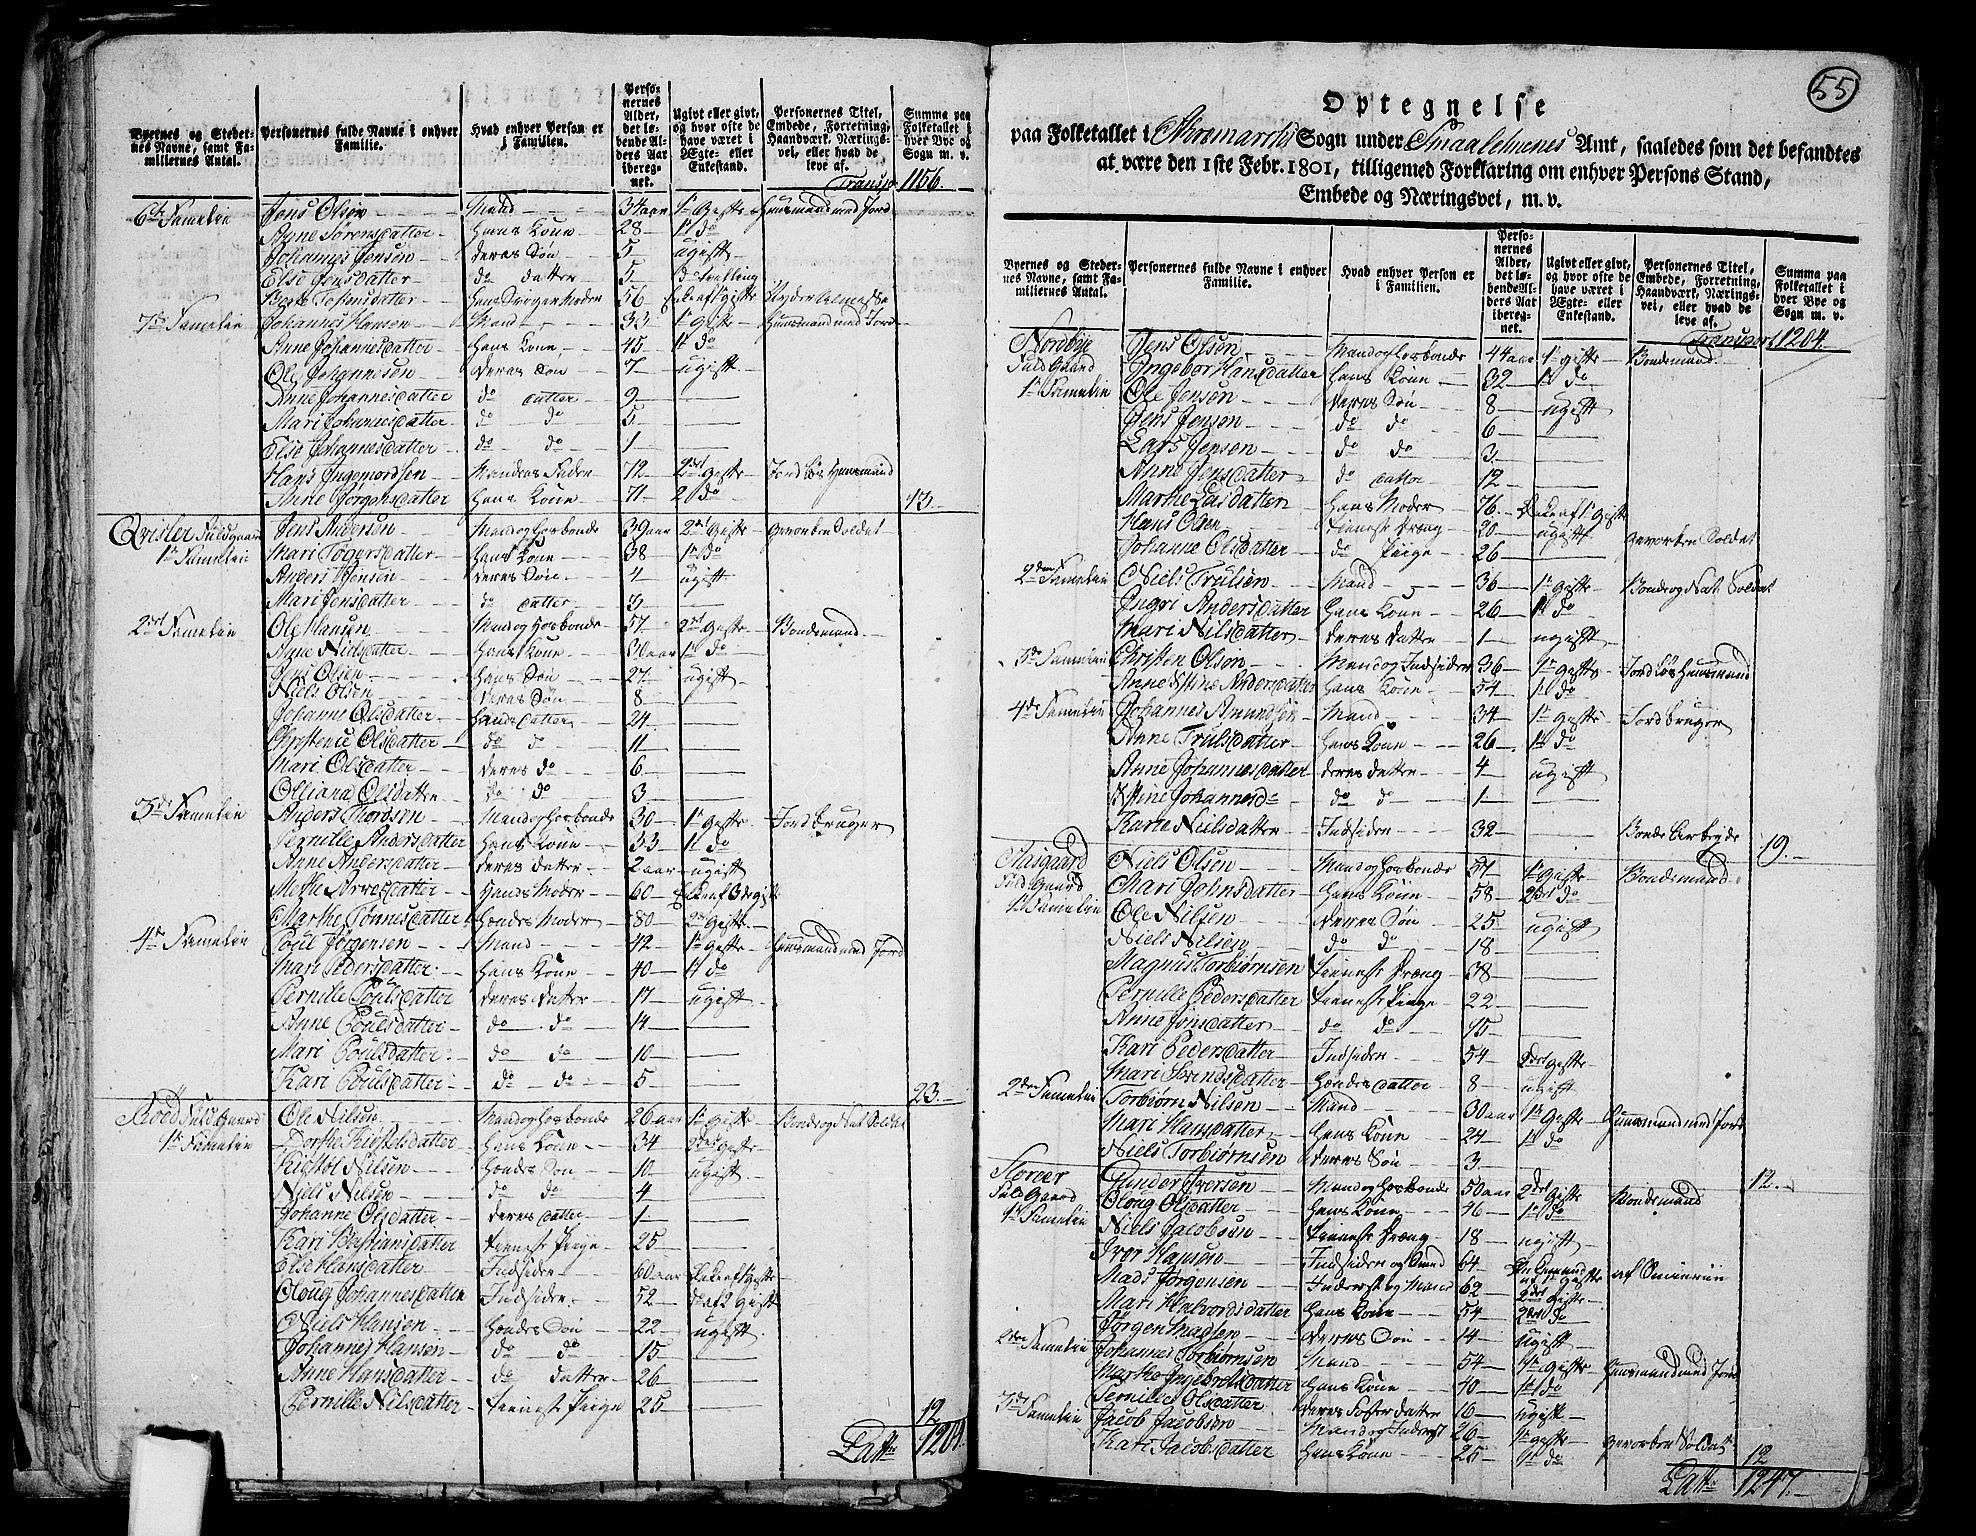 Byernes og Stedernes Navne, samt Familiernes Antal.
Personernes fulde Navne i enhver Familie.
Hvad enhver Person er i Familien.
Personernes Alder, det løbende Alders Aar iberegnet.
Ugivt eller givt, og hvor ofte de have været i Ægte- eller Enkestand.
Personernes Titel, Embede, Forretning, Haandværk, Næringsvei, eller hvad de leve af.
Summa paa Folketallet i hver Bye og Sogn m. v.
Transp 1156.
6te Familie Jens Olsen Mand 34 aar 1te Gifte Huusmand med Jord
Anne Sørensdatter hans Kone 28 1te do
Johannes Jensen deres Søn 5 ugift
Else Jensdatter do datter 5 do
Berte Tostensdatter hans Svigermoder 56
7de Familie Johannes Hansen Mand 33 1te Gifte Huusmand med Jord
Anne Johannesdatter hans Kone 45 1te do
Ole Johannesen deres Søn 7 ugift
Anne Johannesdatter do datter 9
Mari Johannesdatter do do 5
Else Johannesdatter do do 1
Hans Ingemordsen Mandens Fader 72 2det Gifte Jordløs Huusmand
Anne Jørgensdatter hans Kone 71 2 do
13.
Qvisler Fuldgaard Jens Andersen Mand og Hosbonde 39 aar 2det Gifte Geworben Soldat
1te Familie Mari Tøgersdatter hans Kone 38 1te do
Anders Jensen deres Søn 4 ugift
Mari Jensdatter do datter 3
2det Familie Ole Hansen Mand og Hosbonde 57 2det Gifte Bondemand
Anne Nielsdatter hans Kone 30 aar 1te do
Jens Olsen hans Søn 27 ugift
Niels Olsen deres Søn 8
Johanne Olsdatter hans datter 24
Christence Olsdatter do do 11
Mari Olsdatter deres do 6
Olliana Olsdatter do do 3
3die Familie Anders Thordsen Mand og Hosbonde 30 1te Gifte Jordbruger
Pernille Andersdatter hans Kone 33 1te do
Anne Andersdatter deres datter 2 aar ugift
Mette Arvesdatter Hands Moder 60
Marthe Tønnesdatter hendes Moder 80 2det Gifte
4de Familie Poul Jørgensen Mand 42 1te Gifte Huusmand med Jord
Mari Pedersdatter hans Kone 40 1te do
Pernille Poulsdatter deres datter 17 ugift
Anne Poulsdatter do do 14
Mari Poulsdatter do do 10
Kari Poulsdatter do do 5
23.
Roed Fuld Gaard Ole Nilsen Mand og Hosbonde 26 aar 1te Gifte Bonde og Nat Soldat
1te Familie Dorthe Kiøstelsdatter hans Kone 34 2det Gifte
Kiøstøl Nilsen hendes Søn 10 ugift
Niels Nilsen do do 4
Johanne Olsdatter deres datter 1
Kari Bastiansdatter tieneste Pige 25
Else Hansdatter Indsidder 60 aar Enke af 1te Gifte
Oloug Johannesdatter Indsidder 52 do af 2 Gift
Niels Hansen hendes Søn 22 ugift
Johannes Hansen do do 15
Anne Hansdatter do datter 26
Pernille Nilsdatter tieneste Pige 25
12
Latr 1204.
55
Optegnelse
paa Folketallet i Schremarchs Sogn under Smaalehnenes Amt, saaledes som det befandtes
at være den 1ste Febr. 1801, tilligemed Forklaring om enhver Persons Stand,
Embede og Næringsvei, m. v.
Byernes og Stedernes Navne, samt Familiernes Antal.
Personernes fulde Navne i enhver Familie.
Hvad enhver Person er i Familien.
Personernes Alder, det løbende Alders Aar iberegnet.
Ugivt eller givt, og hvor ofte de have været i Ægte- eller Enkestand.
Personernes Titel, Embede, Forretning, Haandværk, Næringsvei, eller hvad de leve af.
Summa paa Folketallet i hver Bye og Sogn m. v.
Transport 1204.
Nordbye Jens Olsen Mand og Hosbonde 44 aar 1te Gifte Bondemand
Fuld Gaard Ingebor Hansdatter hans Kone 32 1te do
1te Familie Ole Jensen deres Søn 8 ugift
Jens Jensen do do 6
Lars Jensen do do 3
Anne Jensdatter do datter 12
Marthe Larsdatter hans Moder 76 Enke af 1te Gifte
Hans Olsen tieneste Dreng 20 ugift Geworben Soldat
Johanne Olsdatter do Pige 26
2den Familie Niels Trulsen Mand 36 1te Gifte Bonde og Nat. Soldat
Ingri Andersdatter hans Kone 26 1te do
Mari Nilsdatter deres datter 1 ugift
3die Familie Christen Olsen Mand og Indsidder 36 1te Gifte Jordløs Huusmand
Anne Stine Andersdatter hans Kone 54 1te do
4de Familie Johannes Amundsen Mand 34 1te Gifte Jordbruger
Anne Trulsdatter hans Kone 26 1te do
Anne Johannesdatter deres datter 4 ugift
Stine Johannesd. do do 1
Karie Nielsdatter Indsidder 32 Bonde Arbeyde
19.
Aasgaard Niels Olsen Mand og Hosbonde 51 1te Gifte Bondemand
Fuld Gaard Mari Johnsdatter hans Kone 58 2det do
1te Familie Ole Nilsen deres Søn 25 ugift
Niels Nilsen do do 18
Magnus Torbiørnsen tieneste Dræng 38
Pernille Pedersdatter tieneste Pige 22
Anne Jønsdatter do do 45
Kari Pedersdatter Indsidder 54 2det Gifte
Mari Svendsdatter hendes datter 8 ugift
2den Familie Torbiørn Nilsen Mand 30 aar 1te Gifte Huusmand med Jord
Mari Hansdatter hans Kone 24 1te do
Niels Torbiørnsen deres Søn 3
12.
Storeer Gunder Iversen Mand og Hosbonde 50 aar 2det Gifte Bondemand
Fuld Gaard Oloug Olsdatter hans Kone 46 1te do
1te Familie Niels Jacobsen tieneste Dræng 18 ugift
Iver Hansen Indsidder og Enkemand 64 En Enkemand af 1te Gifte af Qmiemie
Mads Jørgensen Inderst og Mand 62 2det Gifte
Mari Halvordsdatter hans Kone 54 2det do
Jørgen Madsen deres Søn 14 ugift
2den Familie Johannes Torbiørnsen Mand 54 1te Gifte Huusmand med Jord
Marthe Ingebretsdatter hans Kone 40 1te do
Pernille Olsdatter deres Foster datter 16 ugift
3die Familie Jacob Jacobsen Mand og Inderst 26 1te Gifte Geworben Soldat
Kari Jacobsdatter hans Kone 25 1te do
12
Latr 1247.